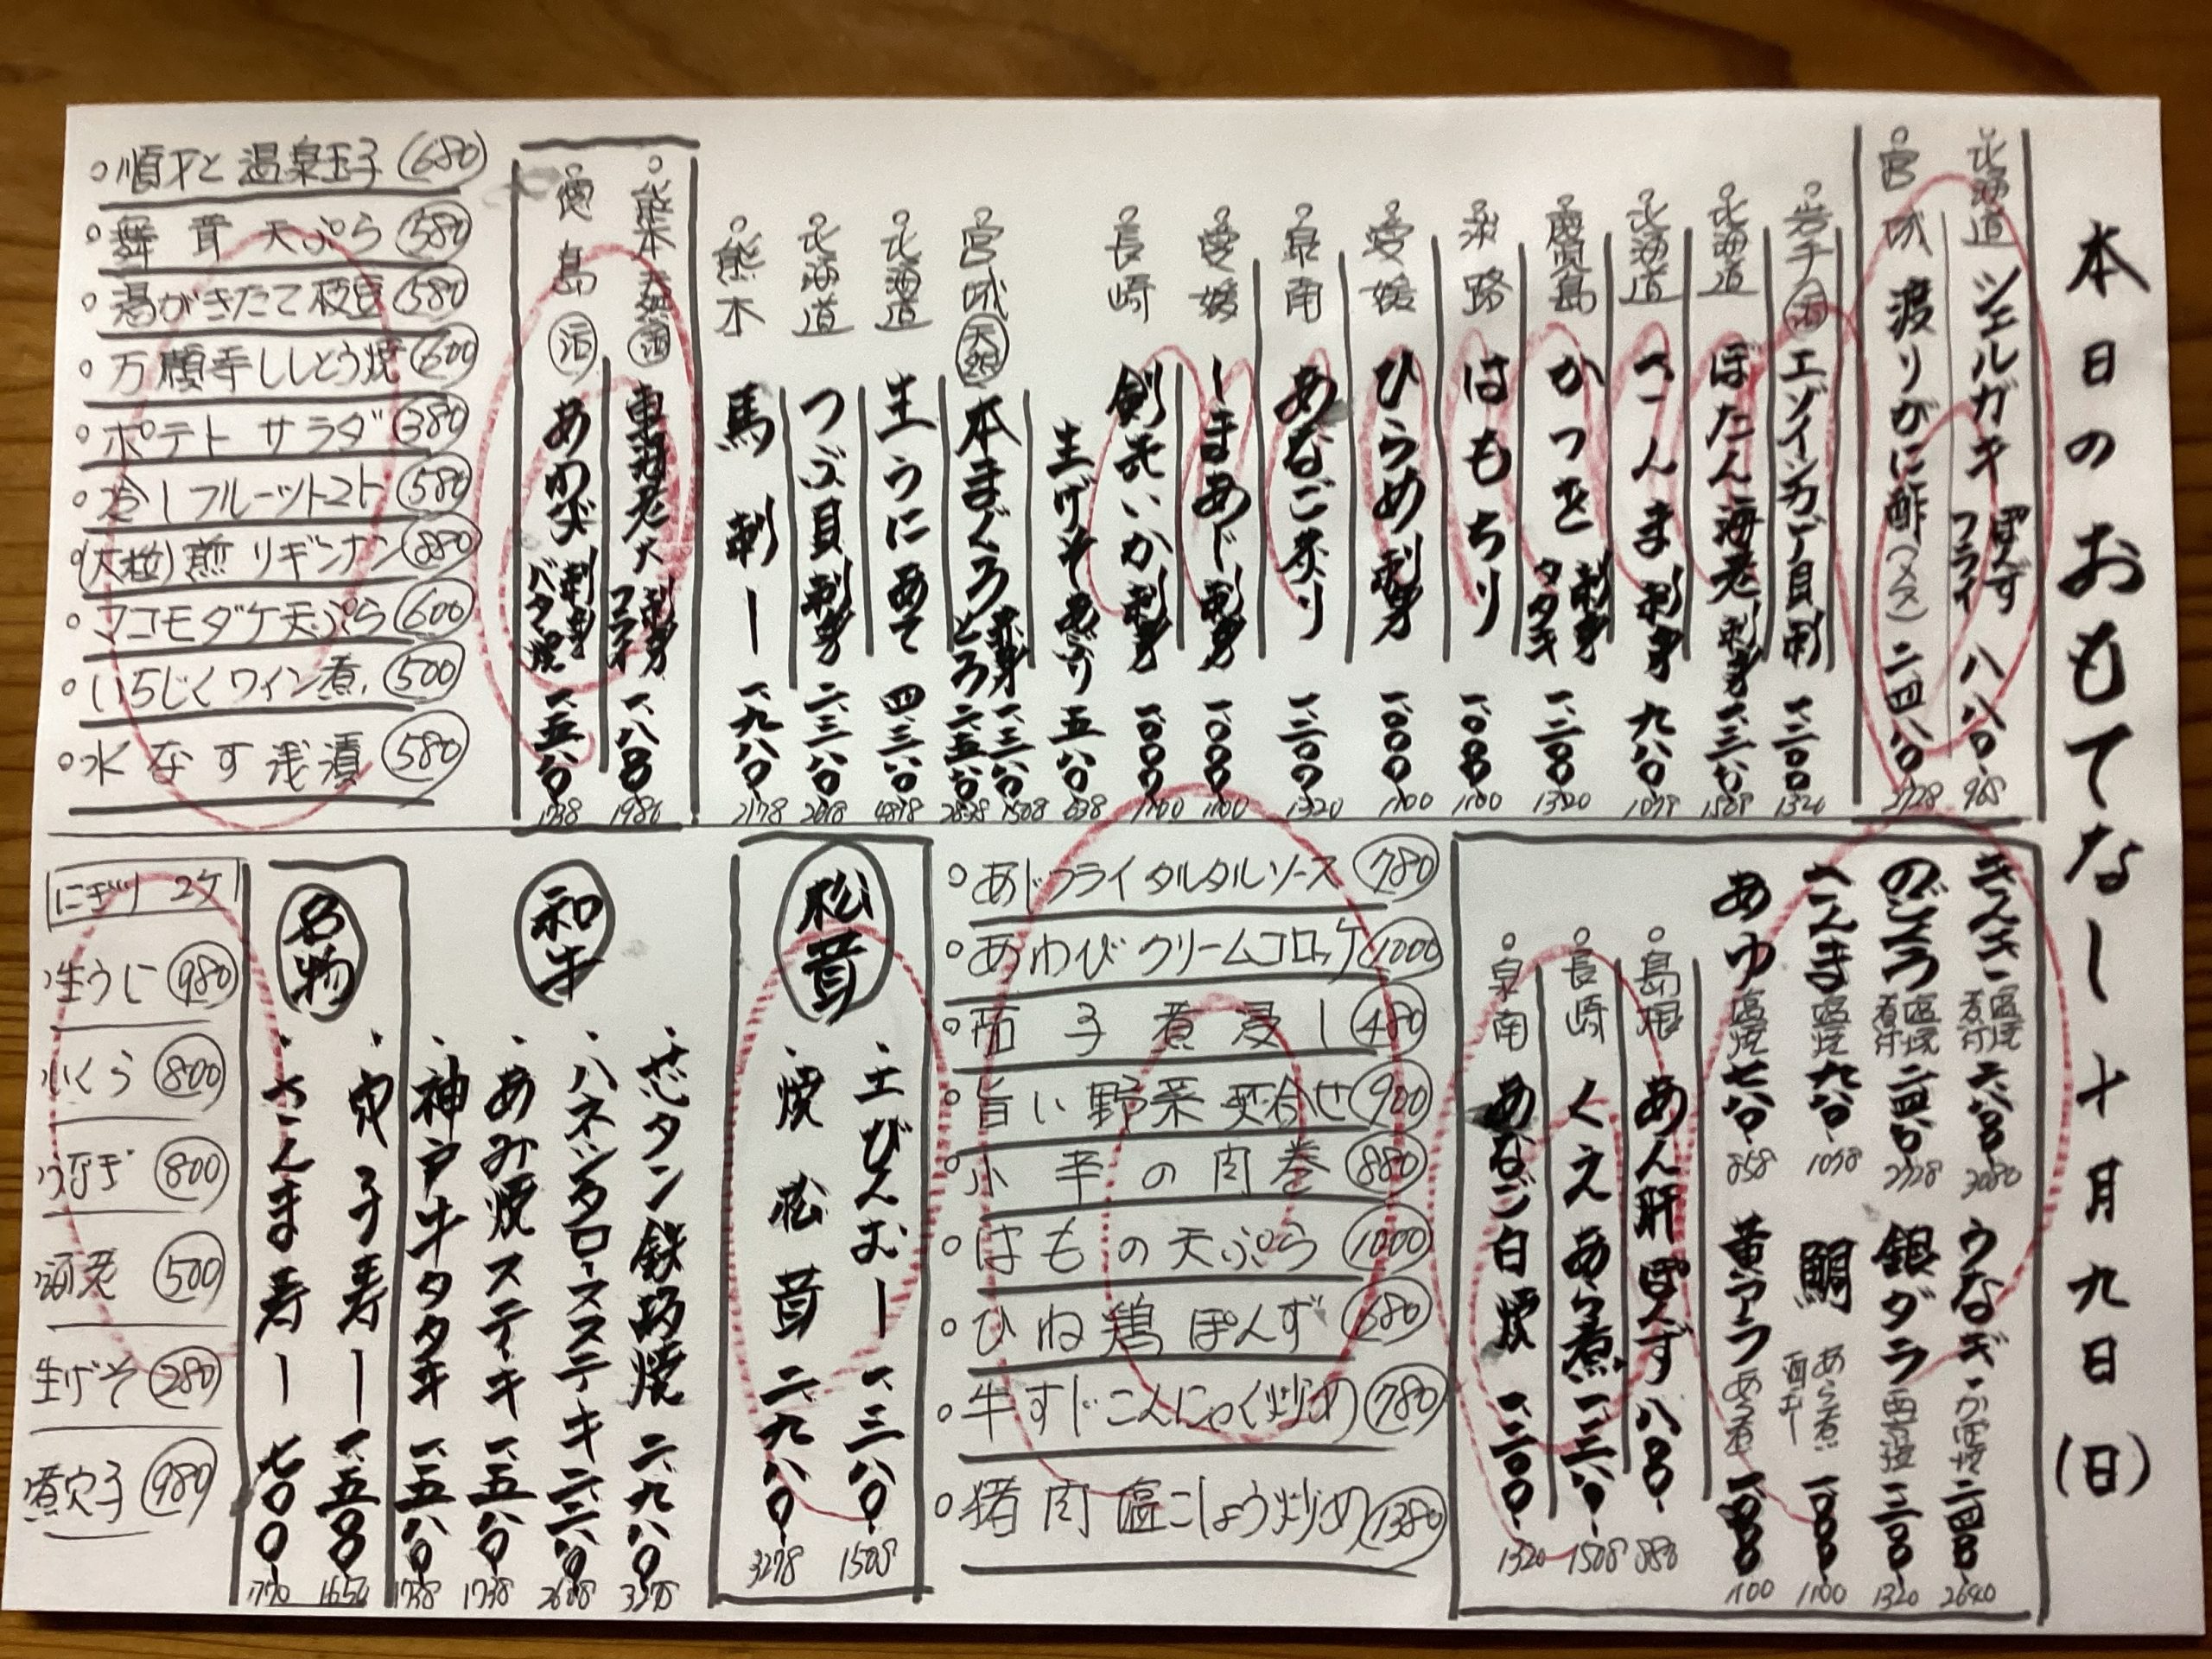 本日のおもてなし 十月九日(日)
北海道 シェルガキ ぽんず フライ 八八〇 968
宮城 渡りがに酢(メス) 二四八〇 2728
岩手 活 エゾイシカゲ貝刺 一、二〇〇 1320
北海道 ぼたん海老 刺身 一、三八〇 1508
北海道 さんま 刺身 九八〇 1078
鹿児島 かつを 刺身 タタキ 一、二〇〇 1320
淡路 はもちり 一、〇〇〇 1100
愛媛 ひらめ 刺身 一、〇〇〇 1100
泉南 あなご炙り 一、二〇〇 1320
愛媛 しまあじ 刺身 一、〇〇〇 1100
長崎 剣先いか 刺身 一、〇〇〇 1100
生げそあぶり 五八〇 638
宮城 天然 本まぐろ 赤身 一、三八〇 1508 とろ 二、五八〇 2838
北海道 生うに あて 四、三八〇 4818
北海道 つぶ貝 刺身 二、三八〇 2618
熊本 馬刺し 一、九八〇 2178
熊本 天然 活 車海老 大 刺身 フライ 一、八〇〇 1980
徳島 活 あわび 刺身 バタ焼 一、五八〇 1738
順才と温泉玉子 680
舞茸天ぷら 580
湯がきたて枝豆 580
万願寺ししとう焼 600
ポテトサラダ 380
冷しフルーツトマト 580
(大粒)煎りギンナン 880
マコモダケ天ぷら 600
いちじくワイン煮 500
水なす浅漬 580
きんき 塩焼 煮付 二、八〇〇 3080 うなぎ かば焼 二四〇〇 2640
のどぐろ 塩焼 煮付 二四八〇 2728 銀ダラ 西京焼 一二〇〇 1320
さんま 塩焼 九八〇 1078 鯛 あら煮 一、〇〇〇 1100
あゆ 塩焼 七八〇 858 黄アラ あら煮 一、〇〇〇 1100
島根 あん肝ぽんず 八〇〇 880
長崎 くえあら煮 一、三八〇 1508
泉南 あなご白焼 一、二〇〇 1320
あじフライタルタルソース 780
あわびクリームコロッケ 1000
茄子煮浸し 480
旨い野菜炊合せ 900
小芋の肉巻 880
はもの天ぷら 1000
ひね鶏ぽんず 680
牛すじこんにゃく炒め 780
猪肉塩こしょう炒め 1380
松茸
・土びんむし 一、三八〇 1508
・焼松茸 二、九八〇 3278
和牛
・芯タン鉄板焼 二、九八〇 3278
・ハネシタロースステーキ 二、三八〇 2618
・あみ焼ステーキ 一、五八〇 1738
・神戸牛タタキ 一、五八〇 1738
名物
・穴子寿し 一、五〇〇 1650
・さんま寿し 七〇〇 770
にぎり 2ケ
生うに 980
いくら 800
うなぎ 800
海老 500
生げそ 280
煮穴子 980